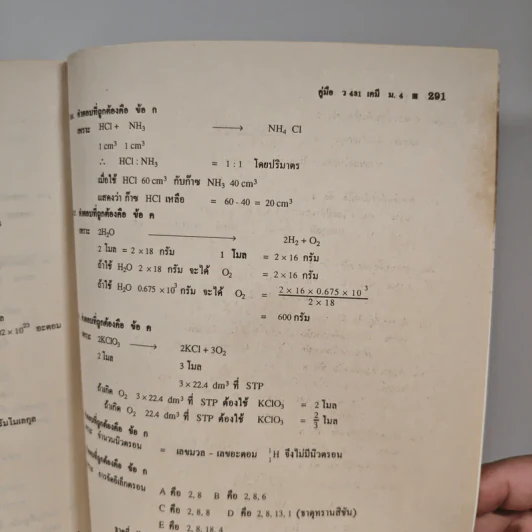 คู่มือ ว 431 เคมี ม. 4 ■ 291
คำตอบที่ถูกต้องคือ ข้อ ก
เพราะ HCl + NH₃ ⟶ NH₄ Cl
1 cm³ 1 cm³
∴ HCl : NH₃ = 1 : 1 โดยปริมาตร
เมื่อใช้ HCl 60 cm³ กับก๊าซ NH₃ 40 cm³
แสดงว่า ก๊าซ HCl เหลือ = 60 - 40 = 20 cm³
คำตอบที่ถูกต้องคือ ข้อ ค
เพราะ 2H₂O ⟶ 2H₂ + O₂
2 โมล = 2 × 18 กรัม 1 โมล = 2 × 16 กรัม
ถ้าใช้ H₂O 2 × 18 กรัม จะได้ O₂ = 2 × 16 กรัม
ถ้าใช้ H₂O 0.675 × 10³ กรัม จะได้ O₂ = 2 × 16 × 0.675 × 10³
2 × 18
= 600 กรัม
คำตอบที่ถูกต้องคือ ข้อ ค
เพราะ 2KClO₃ ⟶ 2KCl + 3O₂
2 โมล 3 โมล
3 × 22.4 dm³ ที่ STP
ถ้าเกิด O₂ 3 × 22.4 dm³ ที่ STP ต้องใช้ KClO₃ = 2 โมล
ถ้าเกิด O₂ 22.4 dm³ ที่ STP ต้องใช้ KClO₃ = 2/3 โมล
คำตอบที่ถูกต้องคือ ข้อ ก
เพราะ จำนวนนิวตรอน = เลขมวล - เลขอะตอม ¹₁H จึงไม่มีนิวตรอน
คำตอบที่ถูกต้องคือ ข้อ ก
การจัดอิเล็กตรอน
A คือ 2, 8 B คือ 2, 8, 6
C คือ 2, 8, 8 D คือ 2, 8, 13, 1 (ธาตุทรานสิชัน)
E คือ 2, 8, 18, 4
10²³ อะตอม